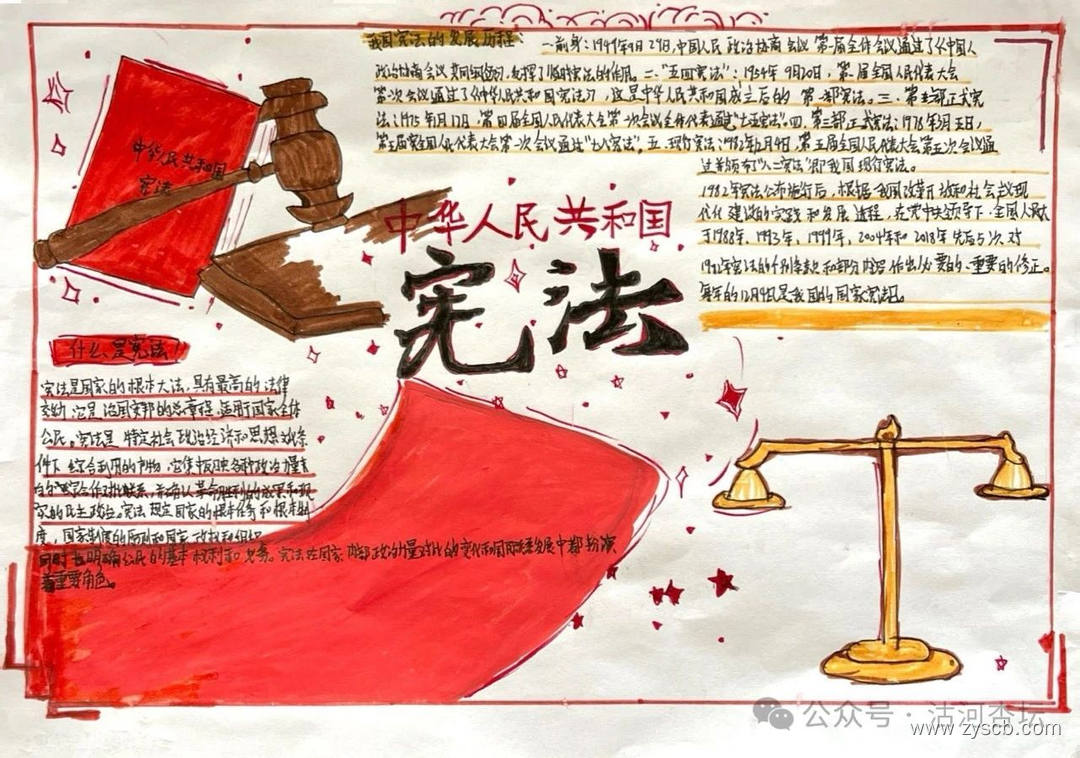 我国宪法的发展历程:
一.前身:1949年9月29日,中国人民政治协商会议第一届全体会议通过了《中国人
政治协商会议共同纲领》,发挥了临时宪法的作用。二、“五四宪法”:1954年9月20日,第一届全国人民代表大会
第一次会议通过了《中华人民共和国宪法》,这是中华人民共和国成立之后的第一部宪法。三、第二部正式宪
法:1975年1月17日,第四届全国人民代表大会第一次会议全体代表通过“七五宪法”。四.第三部正式宪法:1978年3月五日,
第五届全国人民代表大会第一次会议通过“七八宪法”。五.现行宪法:1982年12月4日,第五届全国人民代表大会第五次会议通
过并颁布了“八二宪法”即我国现行宪法。
1982年宪法公布施行后,根据我国改革开放和社会主义现
代化建设的实践和发展进程,在党中央领导下,全国人大
于1988年,1993年,1999年,2004年和2018年先后5次对
1982年宪法的个别条款和部分内容作出必要的、重要的修正。
每年的12月4日是我国的国家宪法日。
中华人民共和国
宪法
中华人民共和国
宪法
什么是宪法
宪法是国家的根本大法,具有最高的法律
效力,它是治国安邦的总章程,适用于国家全体
公民。宪法是特定社会政治经济和思想文化条
件下综合作用的产物,它集中反映各种政治力量
的实际对比关系,并确认革命胜利的成果和现
家的民主政治。宪法规定国家的根本任务和根本制
度,国家制度的原则和国家政权和组织
同时也明确公民的基本权利和义务。宪法在国家内部政治力量对比的变化和国际关系发展中都扮演
着重要角色。
公众号·沽河杏坛
www.zyscb.com